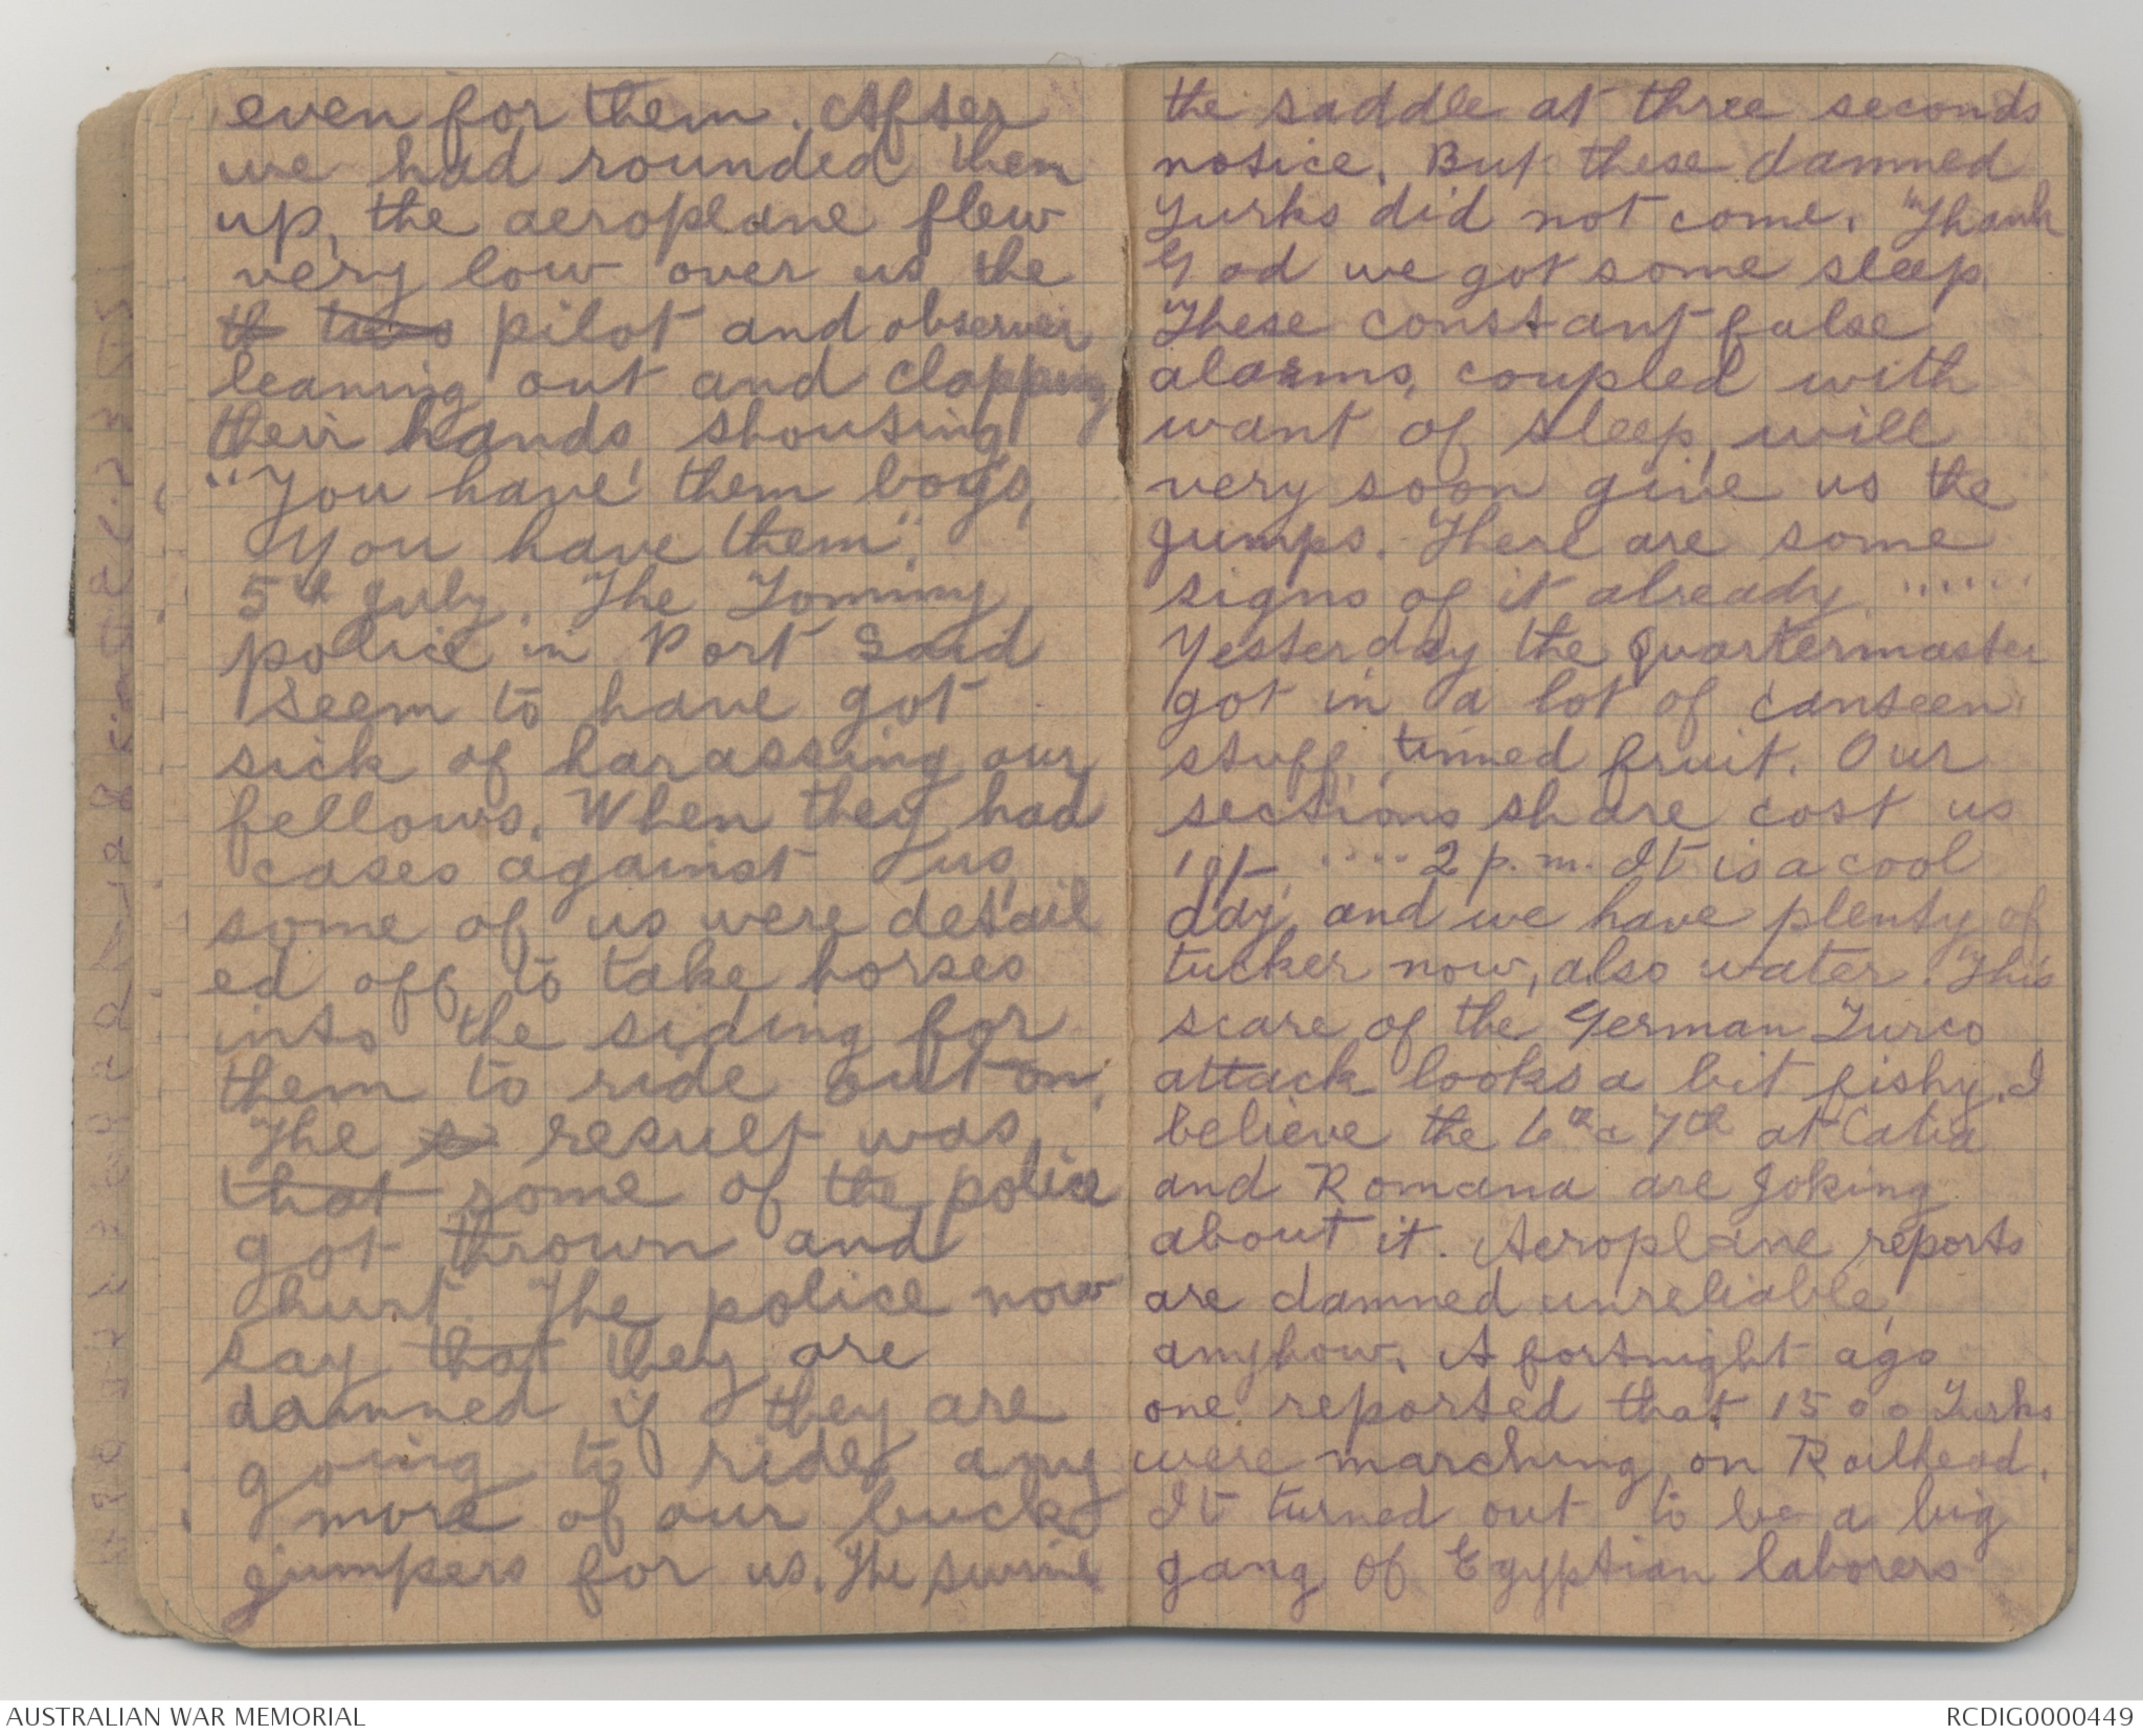 even for them. After
we had rounded them
up, the aeroplane flew
very low over us the
th two pilot and observer
leaning out and clapping
their hands, shouting
"You have them boys,
You have them".
5th July. The Tommy
police in Port Said
seem to have got
sick of harassing our
fellows. When they had
cases against us,
some of us were detail
ed off to take horses
into the siding for
them to ride out on.
The result was,
that some of the police
got thrown and
hurt. The police now
say that they are
damned if they are
going to ride any
more of our buck
jumpers for us. The swine
the saddle at three seconds
notice. But these damned
Turks did not come. Thank
God we got some sleep.
These constant false
alarms, coupled with
want of sleep, will
very soon give us the
jumps. There are some
signs of it already ......
Yesterday the quartermaster
got in a lot of canseen
stuff, tinned fruit. Our
sections share cost us
..... 2 p.m. It is a cool
day, and we have plenty of
tucker now, also water. This
scare of the German Turco
attack looks a bit fishy. I
believe the 6th & 7th at Catia
and Romana are joking
about it. Aeroplane reports
are damned unreliable,
anyhow. A fortnight ago
one reported that 1500 Turks
were marching on Railhead.
It turned out to be a big
gang of Egyptian laborers
AUSTRALIAN WAR MEMORIAL
RCDIG0000449